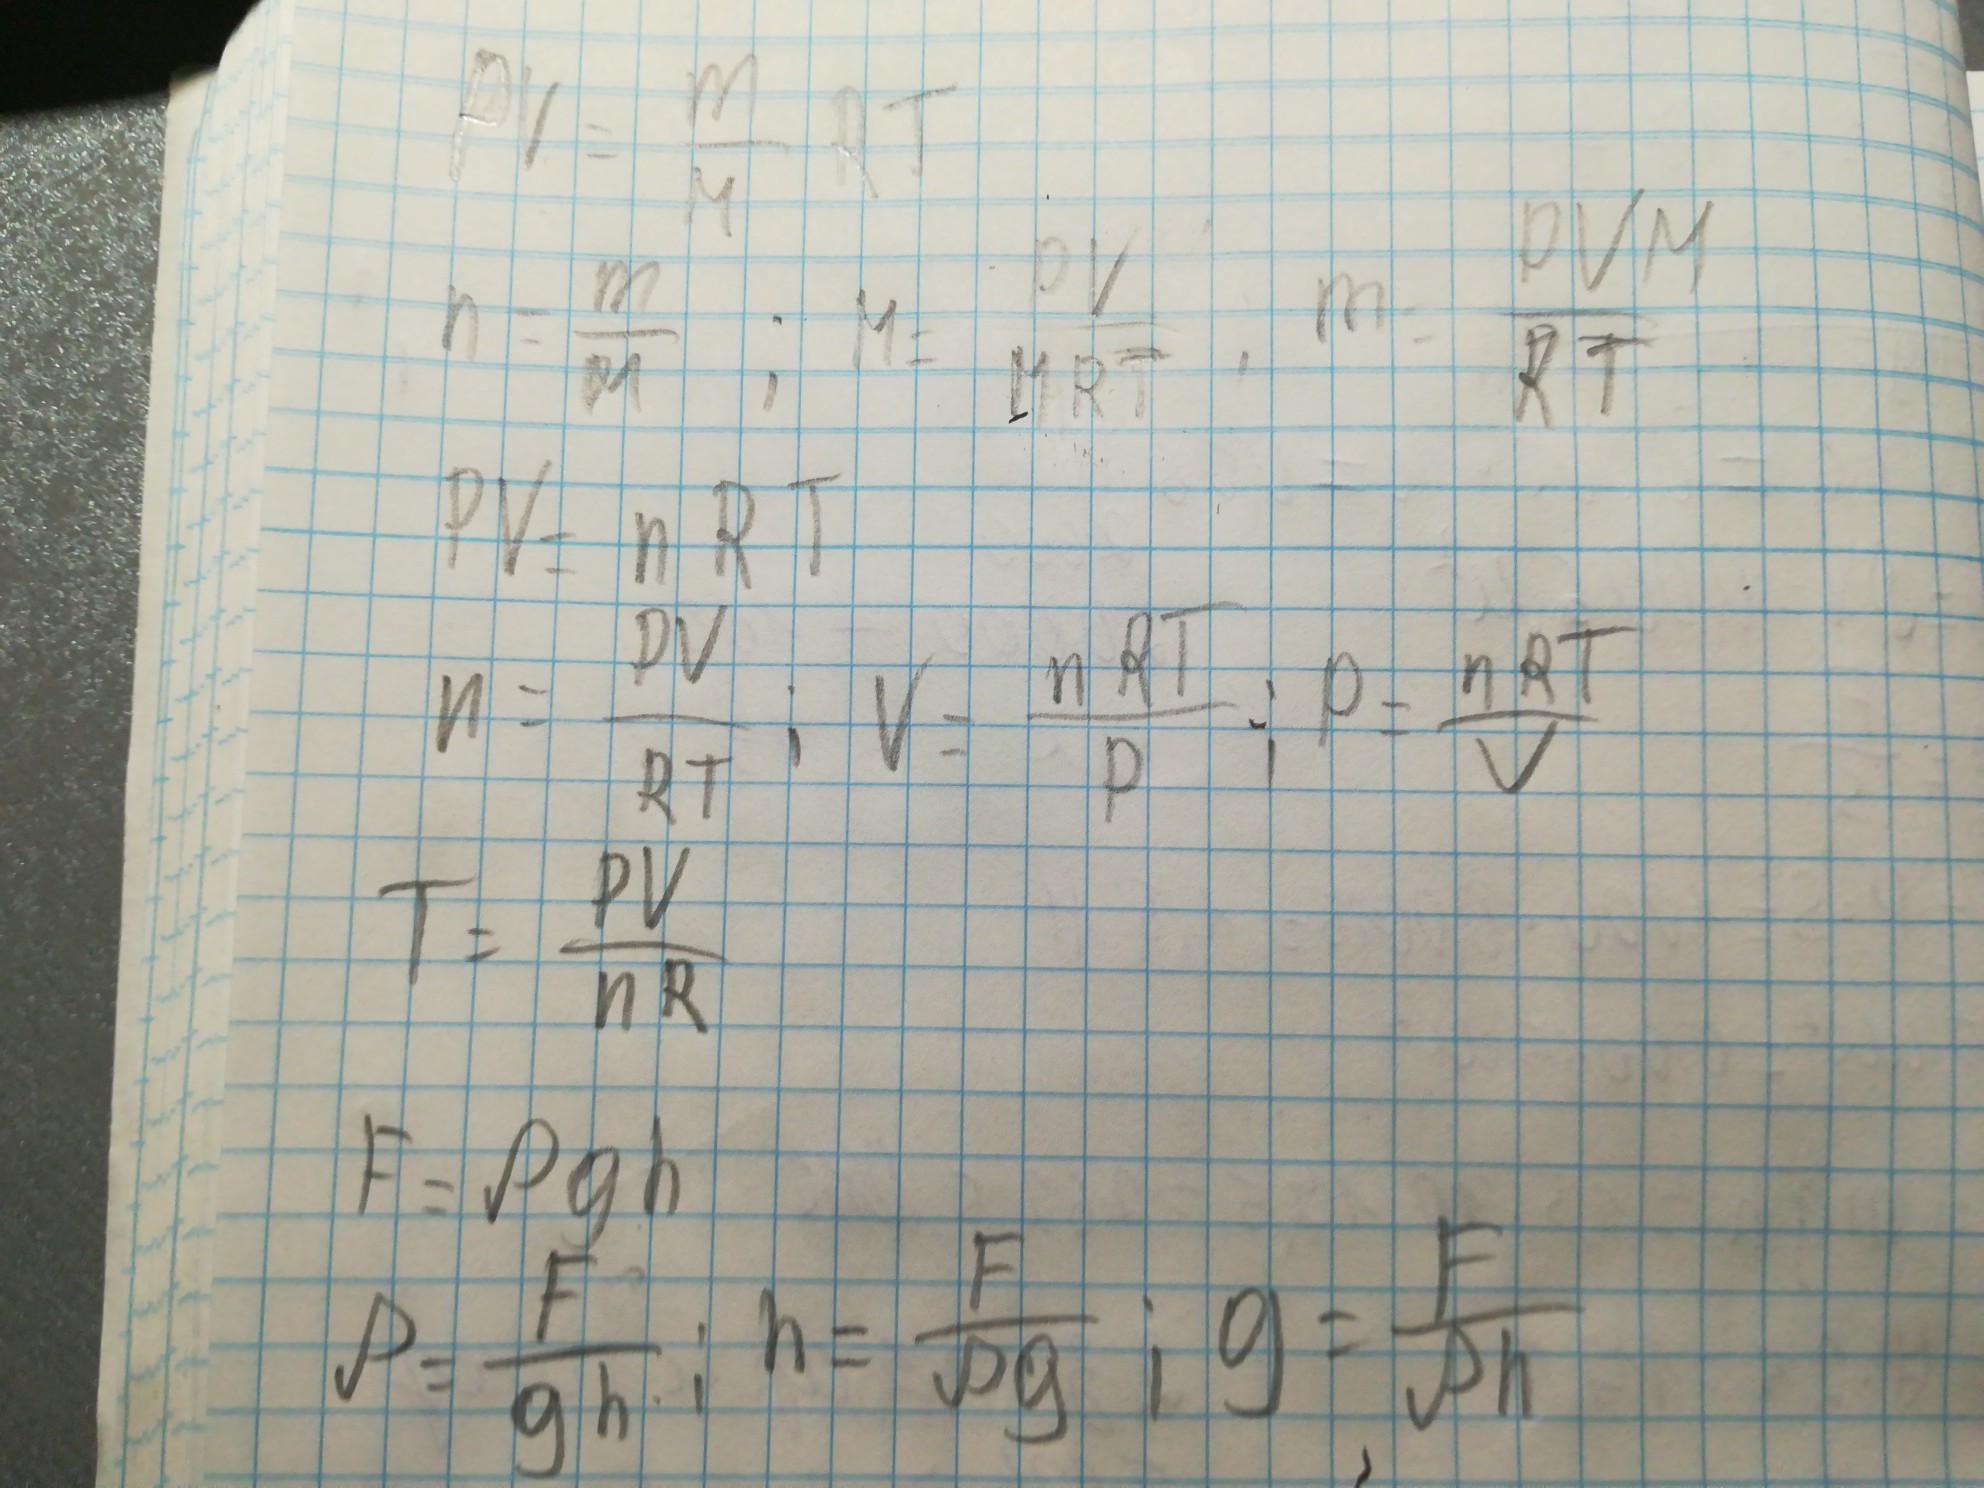 PV = m/M RT
n = m/M ; M = PV/MRT , m = PVM/RT
PV = nRT
n = PV/RT ; V = nRT/P ; P = nRT/V
T = PV/nR
F = ρgh
ρ = F/gh ; h = F/ρg ; g = F/ρh